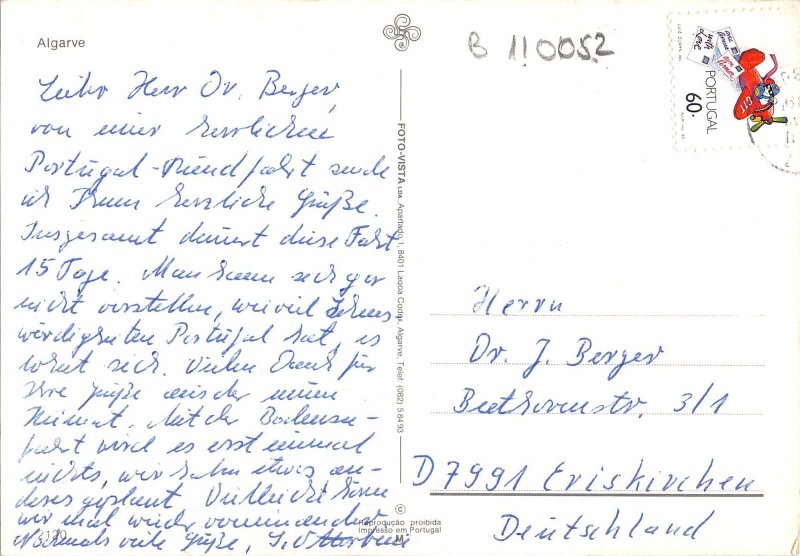 Algarve
B 110052
Lieber Herr Dr. Berger,
von einer herrlichen
Portugal-Rundfahrt sende
ich Ihnen herzliche Grüße.
Insgesamt dauert diese Fahrt
15 Tage. Man kann sich gar
nicht vorstellen, wieviel Sehens-
würdigkeiten Portugal hat, es
lohnt sich. Vielen Dank für
Ihre Grüße aus der neuen
Heimat. Mit der Bodensee-
fahrt wird es erst einmal
nichts, wir haben etwas an-
deres geplant. Vielleicht hören
wir mal wieder voneinander.
Nochmals viele Grüße,
FOTO-VISTA LDA. Apartado 1, 8401 Lagoa Codex, Algarve, Telef. (082) 5 84 93
PORTUGAL
60.
Herrn
Dr. J. Berger
Beethovenstr. 3/1
D 7991 Eriskirchen
Deutschland
©
Reprodução proibida
Impresso em Portugal
M